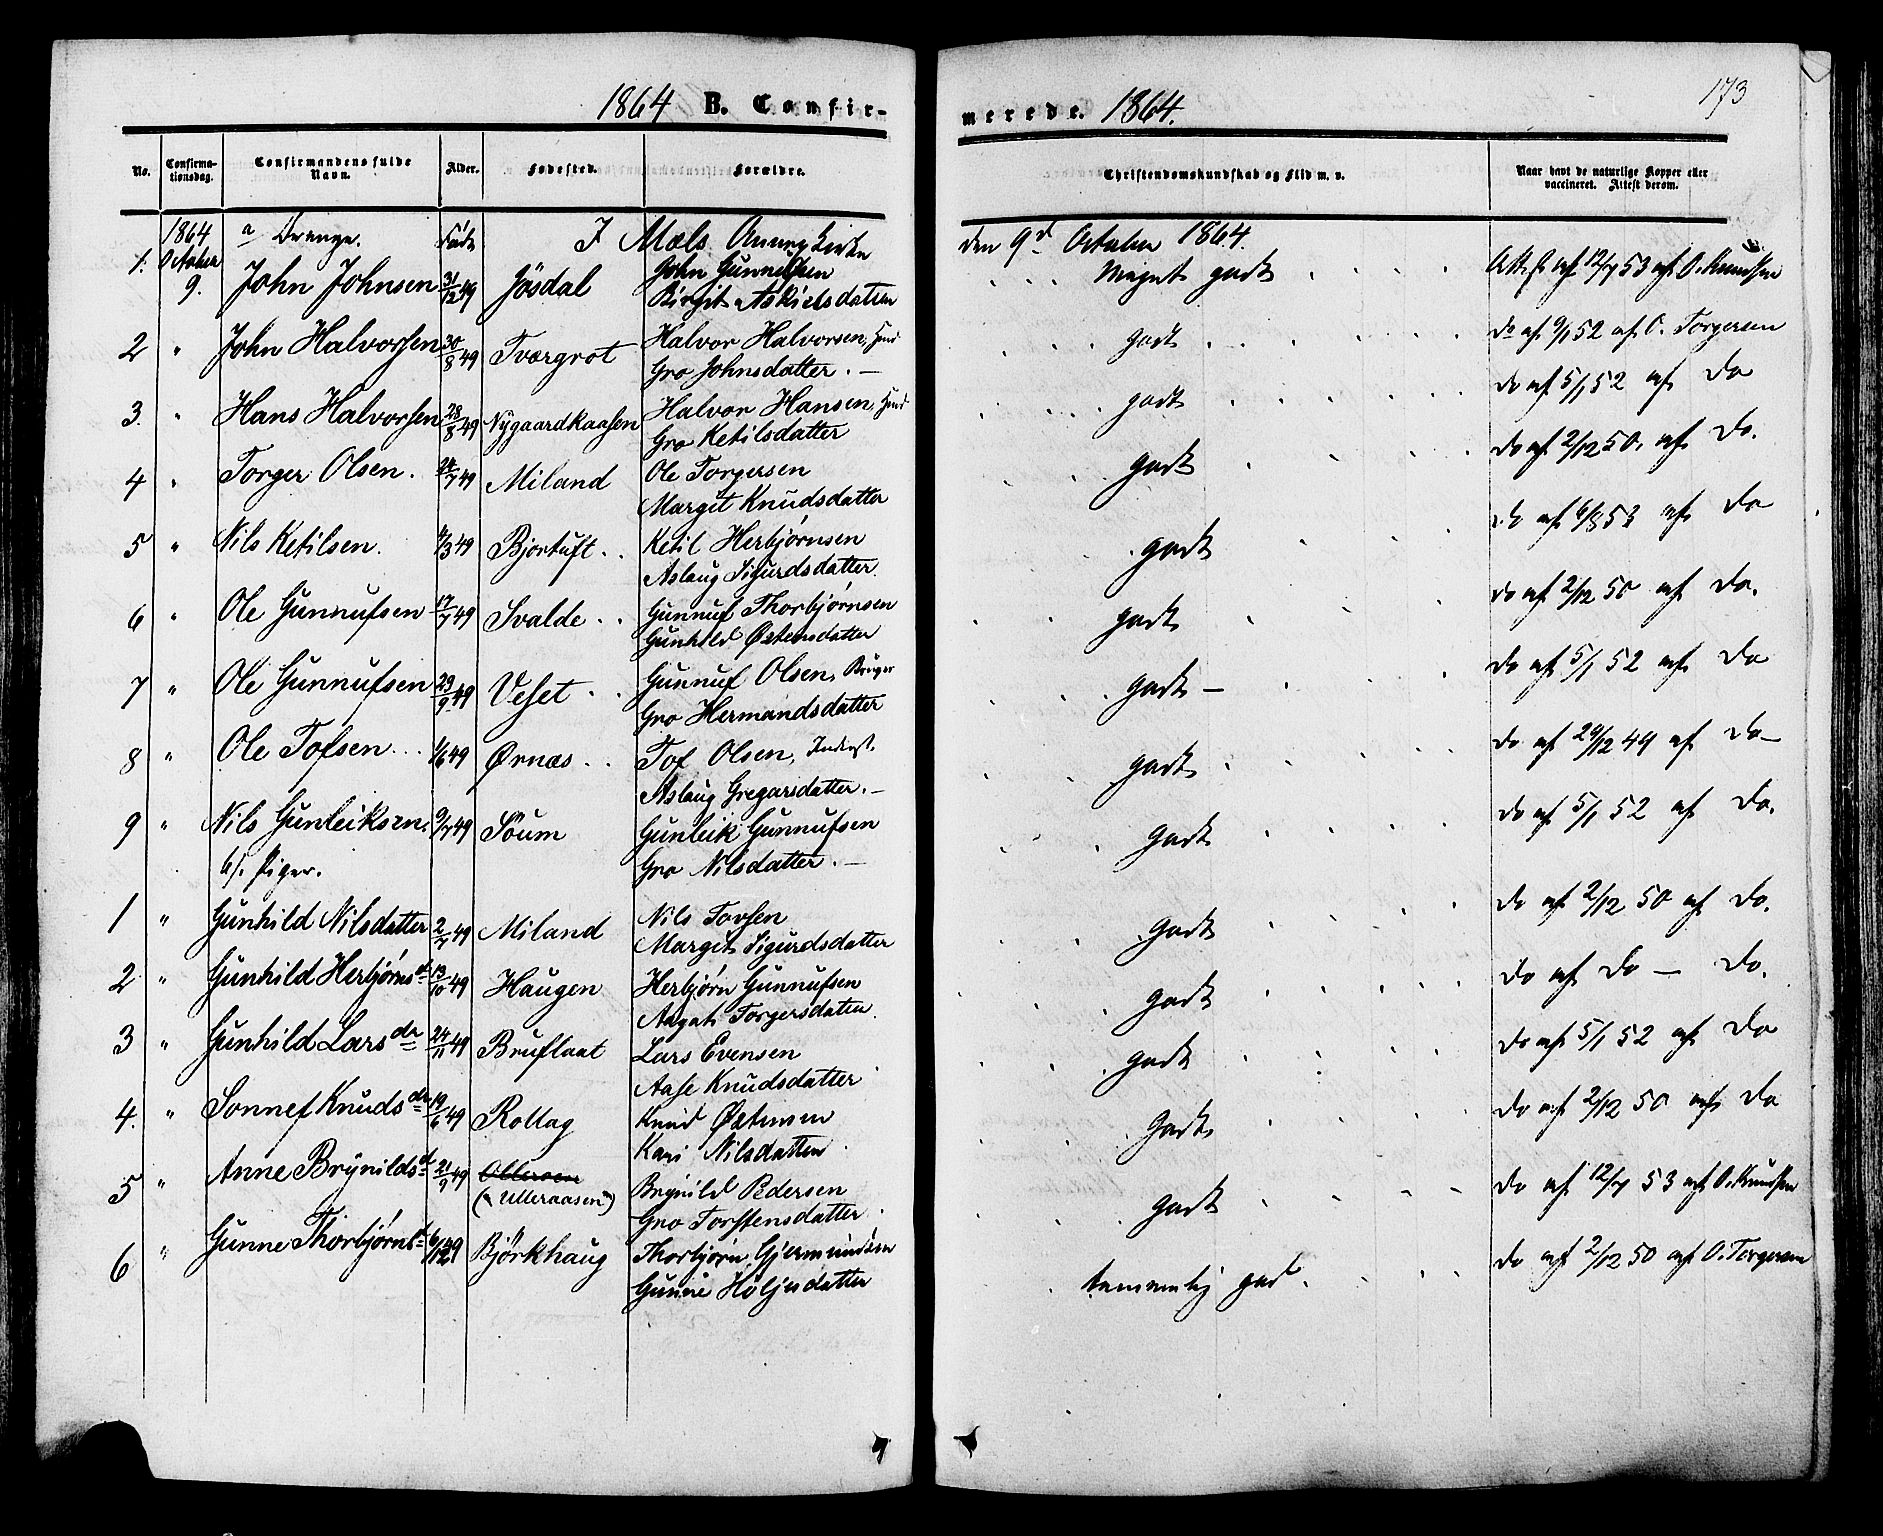 1864 B. Confir-
merede. 1864.
173
No.
Confirma-
tionsdag.
Confirmandens fulde
Navn.
Alder.
Fødested.
Forældre.
Christendomskundskab og Flid m. v.
Naar havt de naturlige Kopper eller
vaccineret. Attest derom.
1864 a/ Drenge. Født I Mæls Annexkirke den 9d October 1864.
1. October 9. John Johnsen 31/12 49 Jösdal John Gunnelfsen Meget godt Att. af 12/7 53 af O. Knudsen
Birgit Askielsdatter
2 " John Halvorsen 30/8 49 Tværgrot Halvor Halvorsen, Huusd godt do af 9/1 52 af O. Torgersen
Gro Johnsdatter. —
3. " Hans Halvorsen 28/8 49 Nygaardkaasen Halvor Hansen, Huusd godt do af 5/1 52 af do
Gro Ketilsdatter
4 " Torger Olsen. 24/7 49 Miland Ole Torgersen godt do af 2/12 50. af do.
Margit Knudsdatter
5 " Nils Ketilsen. 4/3 49 Bjortuft Ketil Herbjørnsen godt do af 6/8 53 af do
Aslaug Sigurdsdatter.
6 " Ole Gunnufsen 17/7 49 Svalde Gunnuf Thorbjørnsen godt do af 2/12 50 af do.
Gunhild Østensdatter
7 " Ole Gunnufsen 29/9 49 Veset Gunnuf Olsen, Bruger godt — do af 5/1 52 af do
Gro Hermandsdatter
8 " Ole Tofsen 1/6 49 Ørnæs Tof Olsen, Inderst. godt do af 29/12 49 af do —
Aslaug Gregarsdatter. —
9 " Nils Gunleiksen. 9/7 49 Söum Gunleik Gunnufsen godt do af 5/1 52 af do.
b/. Piger. Gro Nilsdatter. —
1 " Gunhild Nilsdatter 2/7 49 Miland Nils Tovsen godt do af 2/12 50 af do.
Margit Sigurdsdatter
2 " Gunhild Herbjørnsd 13/10 49 Haugen Herbjørn Gunnufsen godt do af do — do.
Aagat Torgersdatter.
3 " Gunhild Larsda 24/11 49 Bruflaat Lars Evensen godt do af 5/1 52 af do
Aase Knudsdatter
4. " Sonnef Knudsda 19/6 49 Rollag Knud Østensen godt do af 2/12 50 af do
Kari Nilsdatter
5 " Anne Brynildsd 21/9 49 (Ulleraasen) Brynild Pedersen godt do af 12/7 53 af O. Knudsen
Gro Torstensdatter.
6 " Gunne Thorbjørnsd 6/12 49 Björkhaug Thorbjørn Gjermundsen temmelig god. do af 2/12 50 af O. Torgersen
Gunne Höljesdatter